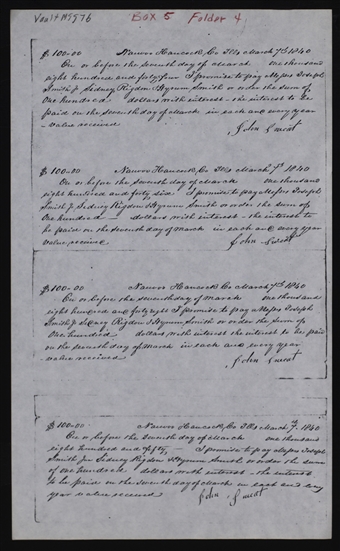 Vault MSS 76 Box 5 Folder 4
$100.00 Nauvoo Hancock Co Ills March 7th 1840
On or before the seventh day of March one thousand
eight hundred and forty four I promise to pay Messrs Joseph
Smith Jr Sidney Rigdon & Hyrum Smith or order the sum of
One hundred dollars with interest - the interest to be
paid on the seventh day of March in each and every year
- value received
John
$100-00 Nauvoo Hancock Co Ills March 7th 1840
On or before the seventh day of March one thousand
eight hundred and forty six I promise to pay Messrs Joseph
Smith Jr Sidney Rigdon & Hyrum Smith or order the sum of
One hundred dollars with interest - the interest to
be paid on the seventh day of March in each and every year
value received
John
$100-00 Nauvoo Hancock Co March 7th 1840
On or before the seventh day of March one thousand
eight hundred and forty eight I promise to pay Messrs Joseph
Smith Jr Sidney Rigdon & Hyrum Smith or order the sum of
One hundred dollars with interest the interest to be paid
on the seventh day of March in each and every year
- value received
John
$100-00 Nauvoo Hancock Co Ills March 7th 1840
On or before the seventh day of March one thousand
eight hundred and fifty, I promise to pay Messrs Joseph
Smith Jr Sidney Rigdon & Hyrum Smith or order the sum
of one hundred dollars with interest - the interest
to be paid on the seventh day of March in each and every
year value received
John